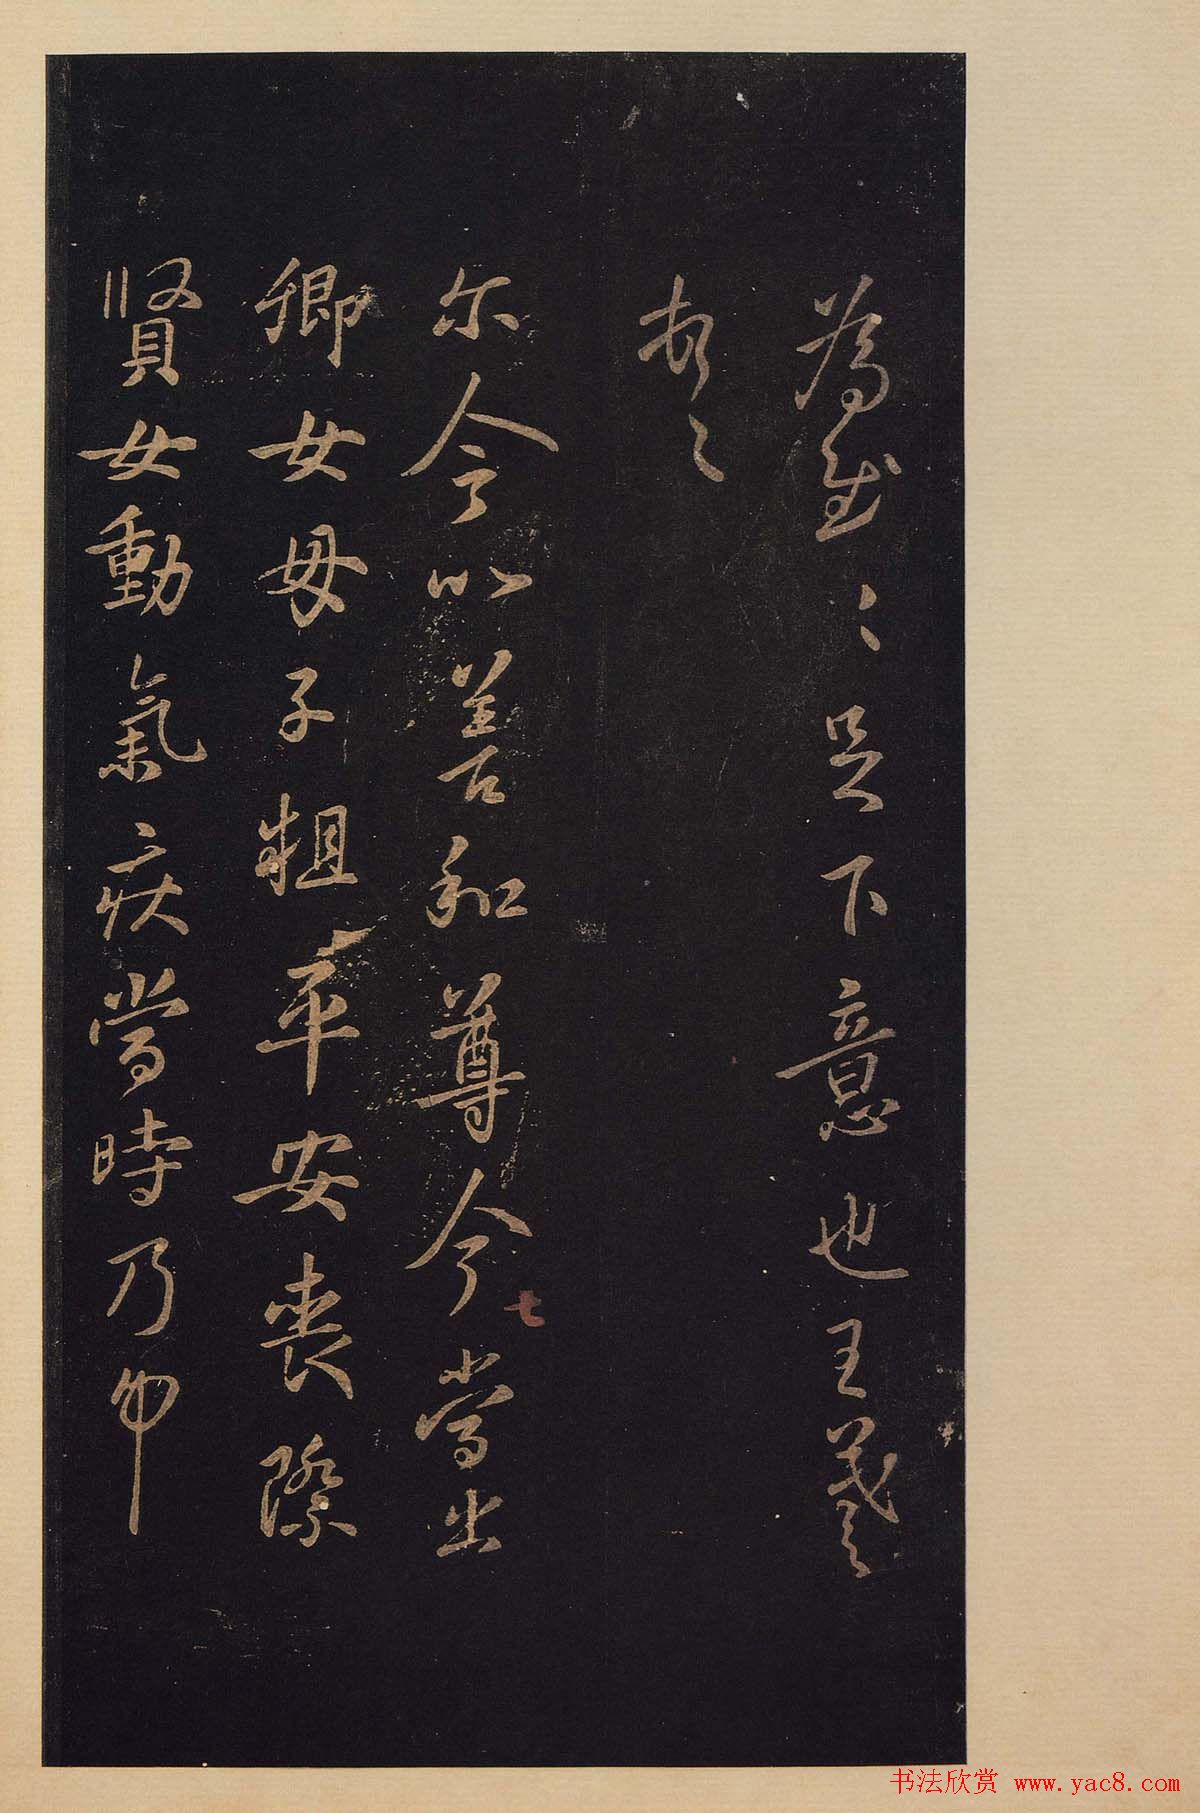 為慰〻足下意也王羲之
頓〻
尔今以善和尊今當出
卿女母子粗平安喪際
賢女動氣疾當時乃
七
书法欣赏 www.yac8.com